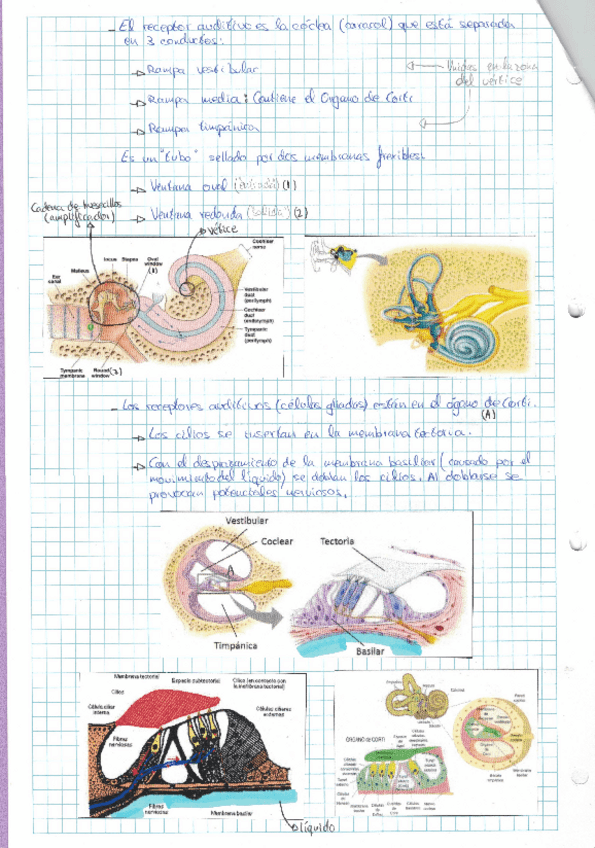 - El receptor auditivo es la cóclea (caracol) que está separada
en 3 conductos:
→ Rampa vestibular
→ Rampa media: Contiene el Organo de Corti
→ Rampa timpánica
Unidas en la zona
del vértice
Es un "tubo" sellado por dos membranas flexibles:
→ Ventana oval (entrada) (1)
→ Ventana redonda (salida) (2)
Cadena de huesecillos
(amplificador)
vértice
Cochlear
nerve
Incus Stapes Oval
window
(1)
Malleus
Ear
canal
Vestibular
duct
(perilymph)
Cochlear
duct
(endolymph)
Tympanic
duct
(perilymph)
Tympanic
membrane
Round
window (2)
- Los receptores auditivos (células ciliadas) están en el órgano de Corti.
(A)
→ Los cilios se insertan en la membrana tectoria.
→ Con el desplazamiento de la membrana basilar (causado por el
movimiento del líquido) se doblan los cilios. Al doblarse se
provocan potenciales nerviosos.
Vestibular
Coclear
Tectoria
A
Timpánica
Basilar
Membrana tectorial
Espacio subtectorial
Cilios (en contacto con
la membrana tectorial)
Cilios
Célula ciliar
interna
Células ciliares
externas
Fibras
nerviosas
Fibras
nerviosas
Membrana basilar
líquido
ÓRGANO de CORTI